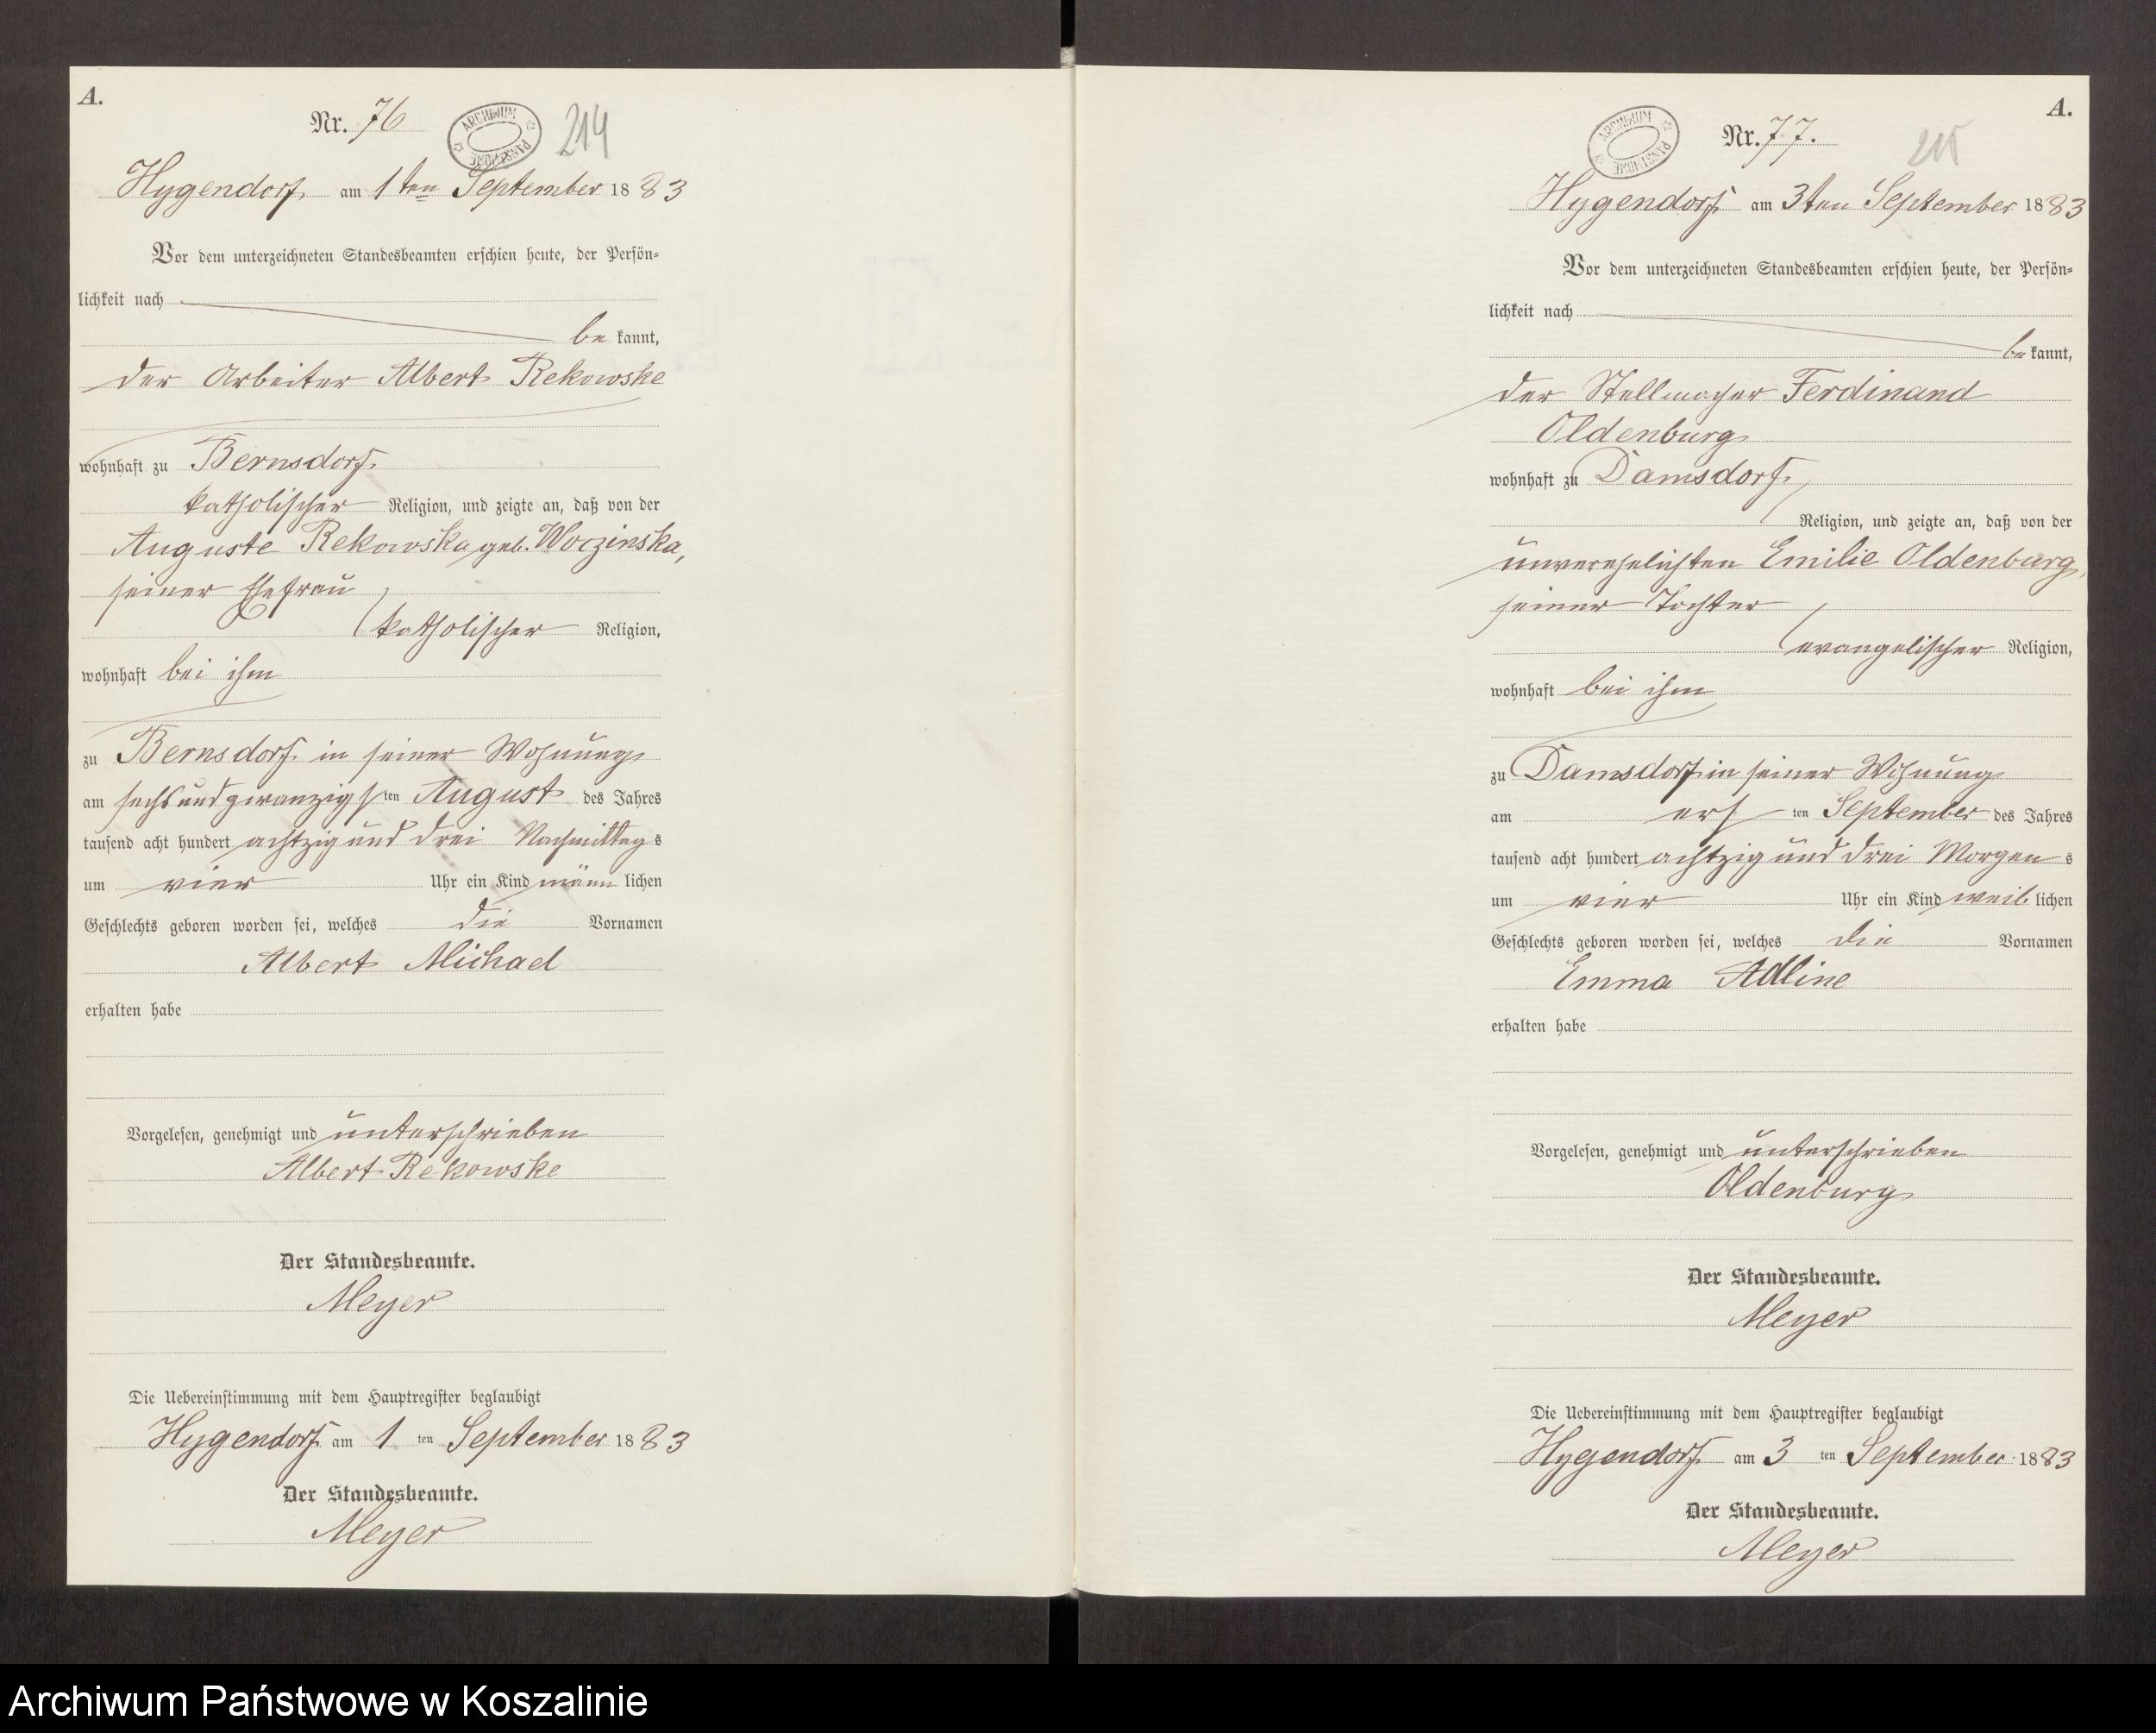 A.
Nr. 76
ARCHIWUM PAŃSTWOWE
214
Hygendorf, am 1ten September 1883
Vor dem unterzeichneten Standesbeamten erschien heute, der Persön-
lichkeit nach
be kannt,
der Arbeiter Albert Rekowske
wohnhaft zu Bernsdorf,
katholischer Religion, und zeigte an, daß von der
Auguste Rekowska geb. Woczinska,
seiner Ehefrau
katholischer Religion,
wohnhaft bei ihm
zu Bernsdorf in seiner Wohnung
am sechsundzwanzigsten August des Jahres
tausend acht hundert achtzig und drei Nachmittags
um vier Uhr ein Kind männlichen
Geschlechts geboren worden sei, welches die Vornamen
Albert Michael
erhalten habe
Vorgelesen, genehmigt und unterschrieben
Albert Rekowske
Der Standesbeamte.
Meyer
Die Uebereinstimmung mit dem Hauptregister beglaubigt
Hygendorf am 1 ten September 1883
Der Standesbeamte.
Meyer
A.
ARCHIWUM PAŃSTWOWE
Nr. 77.
215
Hygendorf am 3ten September 1883
Vor dem unterzeichneten Standesbeamten erschien heute, der Persön-
lichkeit nach
be kannt,
der Stellmacher Ferdinand
Oldenburg
wohnhaft zu Damsdorf,
Religion, und zeigte an, daß von der
unverehelichten Emilie Oldenburg,
seiner Tochter
evangelischer Religion,
wohnhaft bei ihm
zu Damsdorf in seiner Wohnung
am ersten September des Jahres
tausend acht hundert achtzig und drei Morgens
um vier Uhr ein Kind weiblichen
Geschlechts geboren worden sei, welches die Vornamen
Emma Adline
erhalten habe
Vorgelesen, genehmigt und unterschrieben
Oldenburg
Der Standesbeamte.
Meyer
Die Uebereinstimmung mit dem Hauptregister beglaubigt
Hygendorf am 3 ten September 1883
Der Standesbeamte.
Meyer
Archiwum Państwowe w Koszalinie